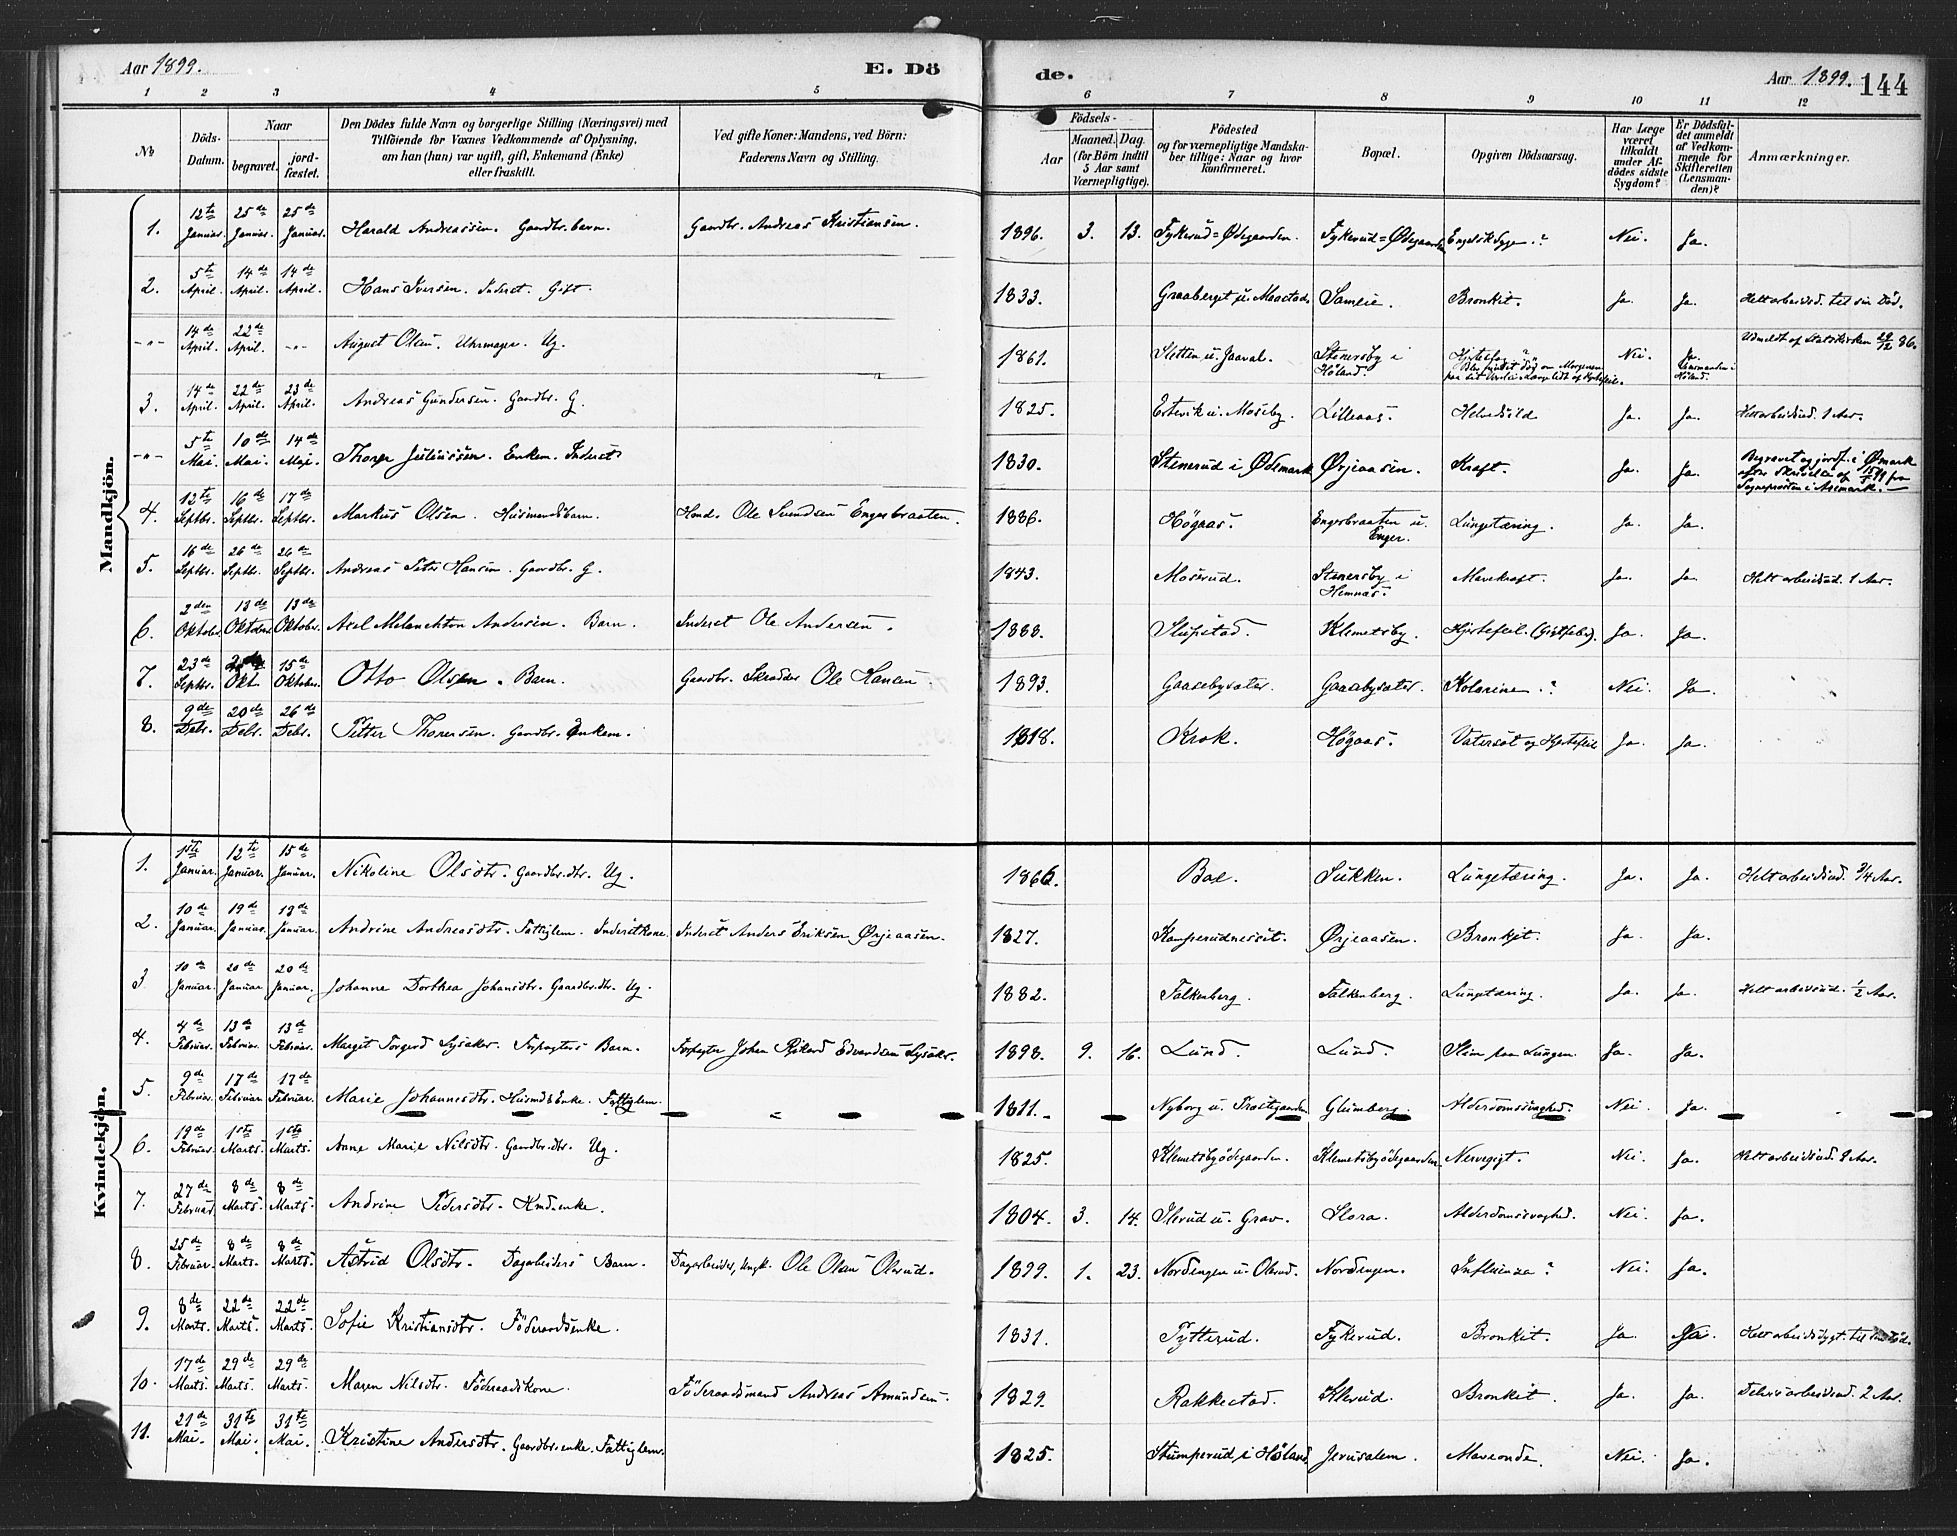 Aar 1899.
E. Dö
de.
Aar 1899. 144
1 2 3 4 5 6 7 8 9 10 11 12
No
Döds-Datum.
Naar
begravet.
jord-fæstet.
Den Dödes fulde Navn og borgerlige Stilling (Næringsvei) med
Tilföiende for Voxnes Vedkommende af Oplysning,
om han (hun) var ugift, gift, Enkemand (Enke)
eller fraskilt.
Ved gifte Koner: Mandens, ved Börn:
Faderens Navn og Stilling.
Födsels-
Aar
Maaned. Dag.
(for Börn indtil
5 Aar samt
Værnepligtige).
Födested
og for værnepligtige Mandska-
ber tillige: Naar og hvor
konfirmeret.
Bopæl.
Opgiven Dödsaarsag.
Har Læge
været
tilkaldt
under Af-
dödes sidste
Sygdom?
Er Dödsfal-
det anmeldt
af Vedkom-
mende for
Skifteretten
(Lensman-
den)?
Anmærkninger.
Mandkjön.
1. 12te Januar. 25de Januar. 25de Januar. Harald Andreassen. Gaardbr. barn. Gaardbr. Andreas Kristiansen. 1896. 3. 13. Fykerud=Ødegaarden. Fykerud=Ødegaarden Engelsk Syge.? Nei. Ja.
2. 5te April. 14de April. 14de April. Hans Iversen. Inderst. Gift. 1833. Graaberget u. Sameie. Bronkit. Ja. Ja. Helt arbeidsud. til sin Död.
-"- 14de April. 22de April. -"- August Olsen. Uhrmager. Ug. 1861. Sletten u. Jaaval. Stenersby i Höland. Nei. Ja. Lensmanden i Höland. Udmeldt af Statskirken 29/12 86.
3. 14de April. 22de April. 23de April. Andreas Gundersen. Gaardbr. G. 1825. Estevik u. Moseby. Lilleaas. Helvedsild Ja. Ja. Helt arbeidsud. 1 Aar.
-"- 5te Mai. 10de Mai. 14de Mai. Thorer Juliussen. Enkem. Inderst. 1830. Stenerud i Ødemark Ørjeaasen. Kraft. Ja. Ja. Begravet og jordf. i Ømark efter Skrivelse af 15/5 99 fra Sogneprosten i Aremark.
4. 12te Septbr. 16de Septbr. 17de Septbr. Markus Olsen. Husmandsbarn. Hmd. Ole Svendsen Engerbraaten. 1886. Högaas. Engerbraaten u. Enger. Lungetæring. Ja. Ja.
5. 16de Septbr. 26de Septbr. 26de Septbr. Andreas Peter Hansen. Gaardbr. G. 1843. Moserud. Stenersby i Hemnæs. Mavekraft. Ja. Ja. Helt arbeidsud. 1 Aar.
6. 2den Oktober. 13de Oktober. 13de Oktober. Axel Melanchton Andersen. Barn. Inderst Ole Andersen. 1888. Slupstad. Klemetsby. Hjertefeil. (Gigtfeber). Ja. Ja.
7. 23de Septbr. Okt. 15de Oktober. Otto Olsen. Barn. Gaardbr. Skrædder Ole Hansen. 1893. Gaasebysæter. Gaasebysæter. Kolerine.? Nei. Ja.
8. 9de Debr. 20de Debr. 26de Debr. Petter Thorersen. Gaardbr. Enkem. 1818. Krok. Högaas. Vatersot og Hjertefeil Ja. Ja.
Kvindekjön.
1. 1ste Januar. 12te Januar. 15de Januar. Nikoline Olsdtr. Gaardbr.dtr. Ug. 1866. Boxe. Sukken. Lungetæring. Ja. Ja. Helt arbeidsud. 3/4 Aar.
2. 10de Januar. 19de Januar. 19de Januar. Andrine Andreasdtr. Fattiglem. Inderstkone. Inderst Anders Eriksen Ørjeaasen. 1827. Kamperudnesset. Ørjeaasen. Bronkit. Ja. Ja.
3 10de Januar. 20de Januar. 20de Januar. Johanne Dorthea Johansdtr. Gaardbr.dtr. Ug. 1882. Falkenberg. Falkenberg. Lungetæring. Ja. Ja. Helt arbeidsud. 1/2 Aar.
4. 4de Februar. 13de Februar. 13de Februar. Margit Torgerd Lysaker. Forpagters Barn. Forpagter Johan Rikard Edvardsen Lysaker. 1898. 9. 16. Lund. Lund. Slim paa Lungen. Ja. Ja.
5. 9de Februar. 17de Februar. 17de Februar. Marie Johannesdtr. Husmds Enke. Fattiglem. 1811. Nyborg u. Glumberg. Alderdomssvaghed. Nei. Ja.
6. 19de Februar. 1ste Marts. 1ste Marts. Anne Marie Nilsdtr. Gaardbr.dtr. Ug. 1825. Klemetsbyödegaarden. Klemetsbyödegaarden. Nervegigt. Nei. Ja. Helt arbeidsud. Aar.
7. 27de Februar 8de Marts. 8de Marts. Andrine Pedersdtr. Hmd.enke. 1804. 3. 14. Slerud u. Grav. Slora. Alderdomssvaghed. Nei. Ja.
8. 25de Februar. 8de Marts. 8de Marts. Astrid Olsdtr. Dagarbeiders Barn. Dagarbeider, Ungk. Ole Olsen Olerud. 1899. 1. 23. Nordengen u. Olerud. Nordengen. Influenza? Nei. Ja.
9. 8de Marts. 22de Marts. 22de Marts. Sofie Kristiansdtr. Föderaadsenke. 1831. Tytterud. Fykerud. Bronkit. Ja. Ja. Helt arbeidsdygt. til sin Död.
10. 17de Marts. 29de Marts. 29de Marts. Maren Nilsdtr. Föderaadskone. Föderaadsmand Andreas Amundsen. 1829. Rakkestad. Klerud. Bronkit. Ja. Ja. Delvis arbeidsud. 2 Aar.
11. 21de Mai. 31te Mai. 31te Mai. Kristine Andersdtr. Gaardbr.enke. Fattiglem. 1825. Stumperud i Höland. Jerusalem. Maveonde. Nei. Ja.